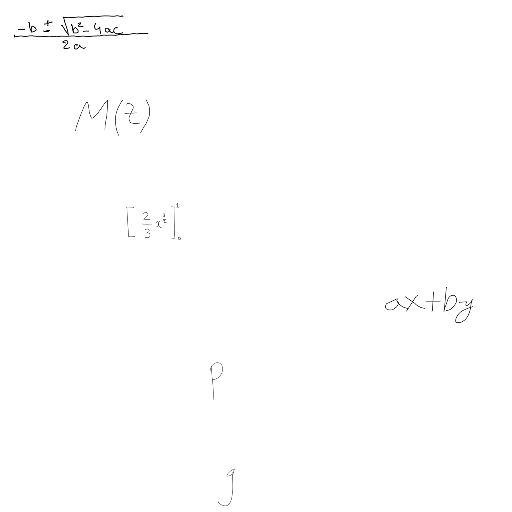 \frac{-b \pm \sqrt{b^2 - 4ac}}{2a}
M(z)
\left[ \frac{2}{3} x^{\frac{3}{2}} \right]_0^1
ax+by
p
g